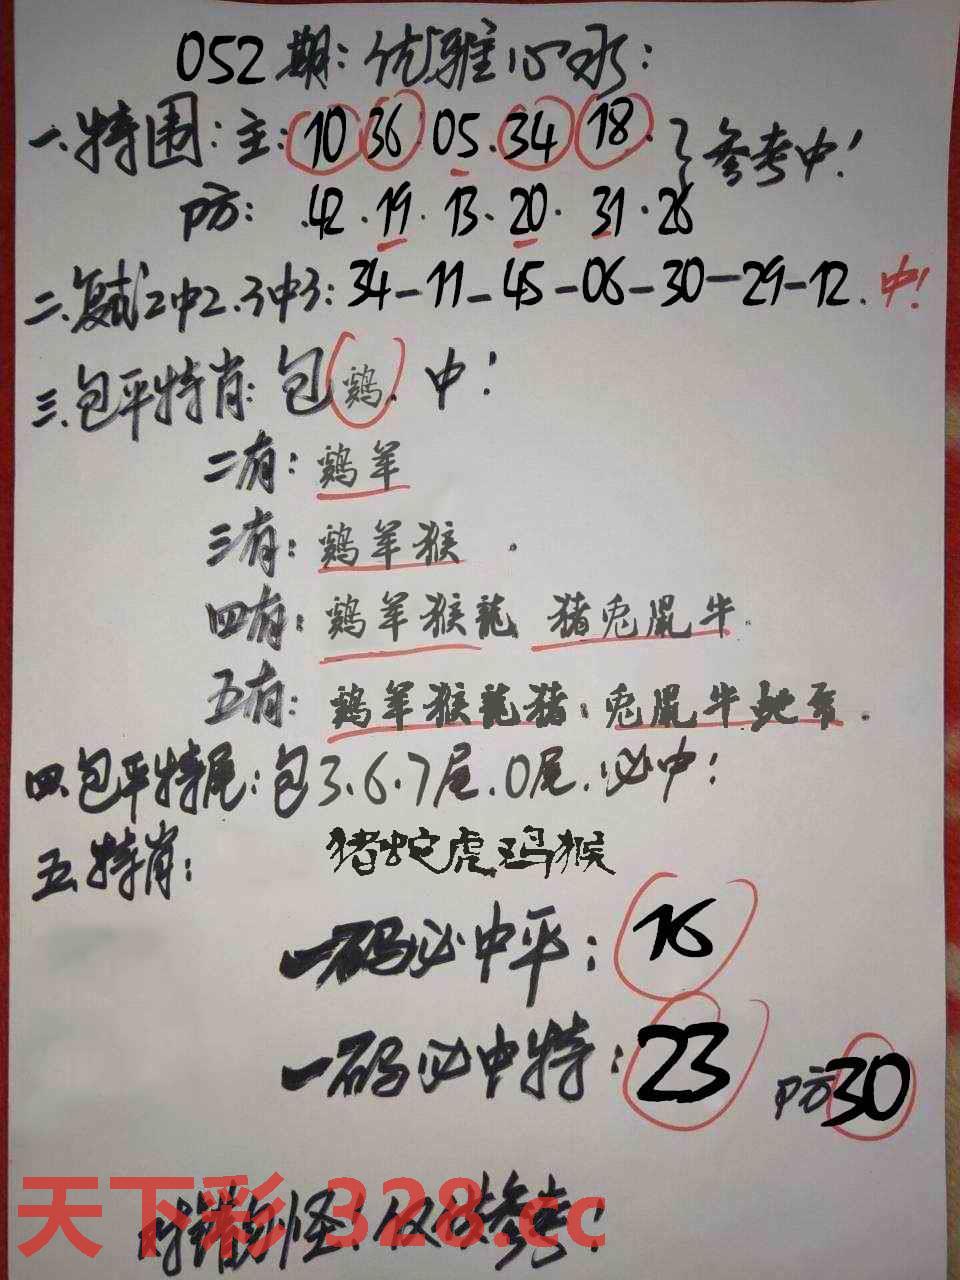 052期:优雅心水:
一.特围:主:10 36 05.34 18.}参考中!
防:.42.19.13.20.31.26
二.复式2中2.3中3:34-11-45-06-30-29-12.中!
三.包平特肖:包鸡.中!
二有:鸡羊
三有:鸡羊猴.
四有:鸡羊猴龍 猪兔鼠牛.
五有:鸡羊猴龍猪:兔鼠牛蛇.
四.包平特尾:包3.6.7尾.0尾.必中!
五.特肖:猪蛇虎鸡猴
一码必中平:16
一码必中特:23 防30
对错勿怪!仅供参考!
天下彩 328.cc